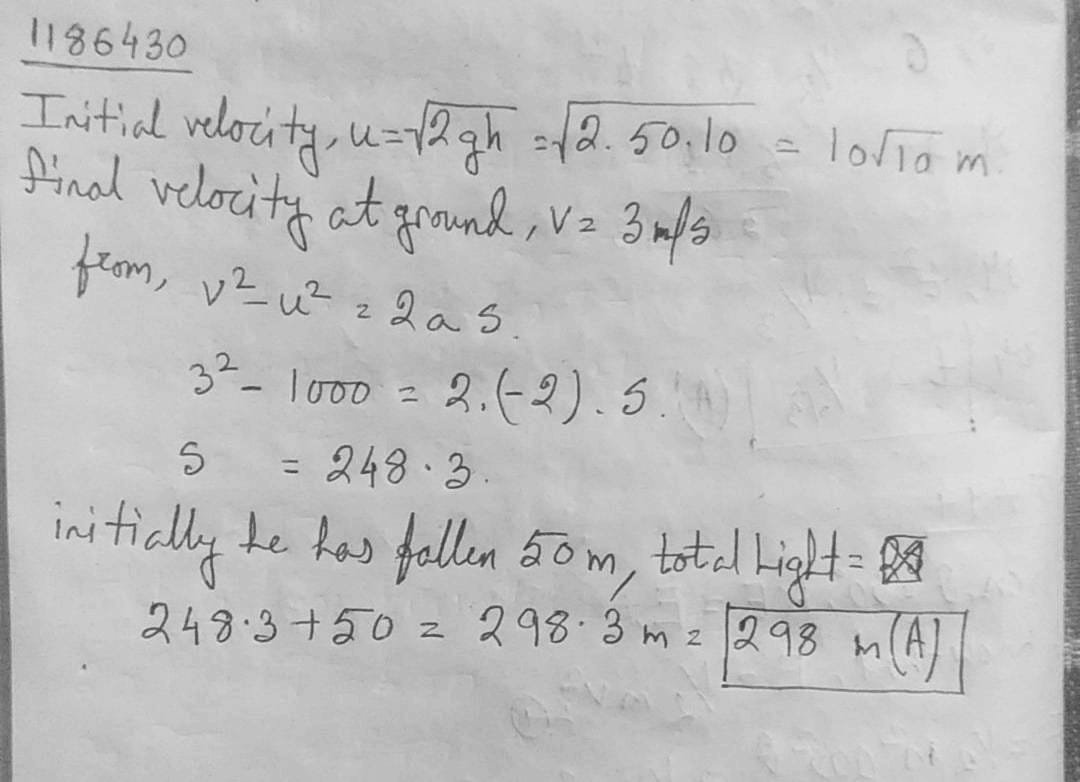 1186430
Initial velocity, u=√2gh =√2.50.10 = 10√10 m.
final velocity at ground, v = 3 m/s
from, v²-u² = 2as.
3² - 1000 = 2.(-2).s.
s = 248.3.
initially he has fallen 50m, total hight =
248.3+50 = 298.3 m = 298 m (A)